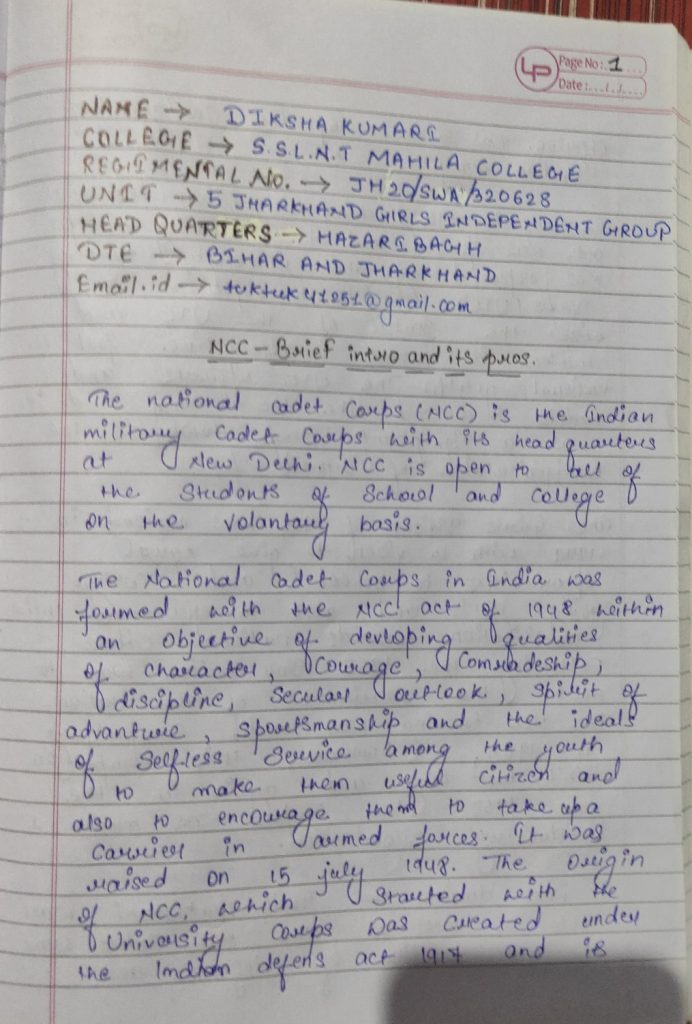 LP
Page No: 1
Date:
NAME → DIKSHA KUMARI
COLLEGE → S.S.L.N.T MAHILA COLLEGE
REGIMENTAL No. → JH20/SWA/320628
UNIT → 5 JHARKHAND GIRLS INDEPENDENT GROUP
HEAD QUARTERS → HAZARIBAGH
DTE → BIHAR AND JHARKHAND
Email.id → tuktuk41251@gmail.com
NCC - Brief intro and its pros.
The national cadet Corps (NCC) is the Indian
military Cadet Corps with its head quarters
at New Delhi. NCC is open to all of
the Students of School and College
on the volantary basis.
The National cadet Corps in India was
formed with the NCC act of 1948 within
an objective of devloping qualities
of character, Courage, Comradeship,
discipline, Secular outlook, spirit of
advanture, sportsmanship and the ideals
of Selfless Service among the youth
to make them useful citizen and
also to encourage them to take up a
Carrier in armed forces. It was
raised on 15 july 1948. The Origin
of NCC, which Started with the
University Corps was Created under
the Indian defens act 1917 and is